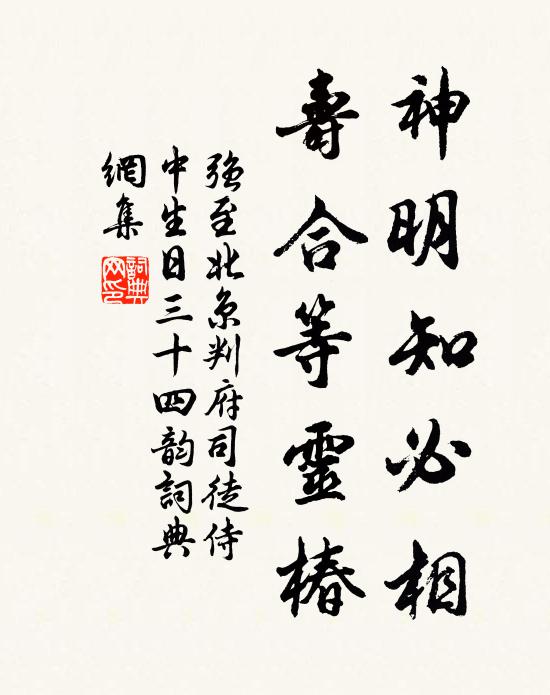 神明知必相
壽合等靈椿
强至北京判府司徒侍
中生日三十四韵詞典
網集
詞典
网印